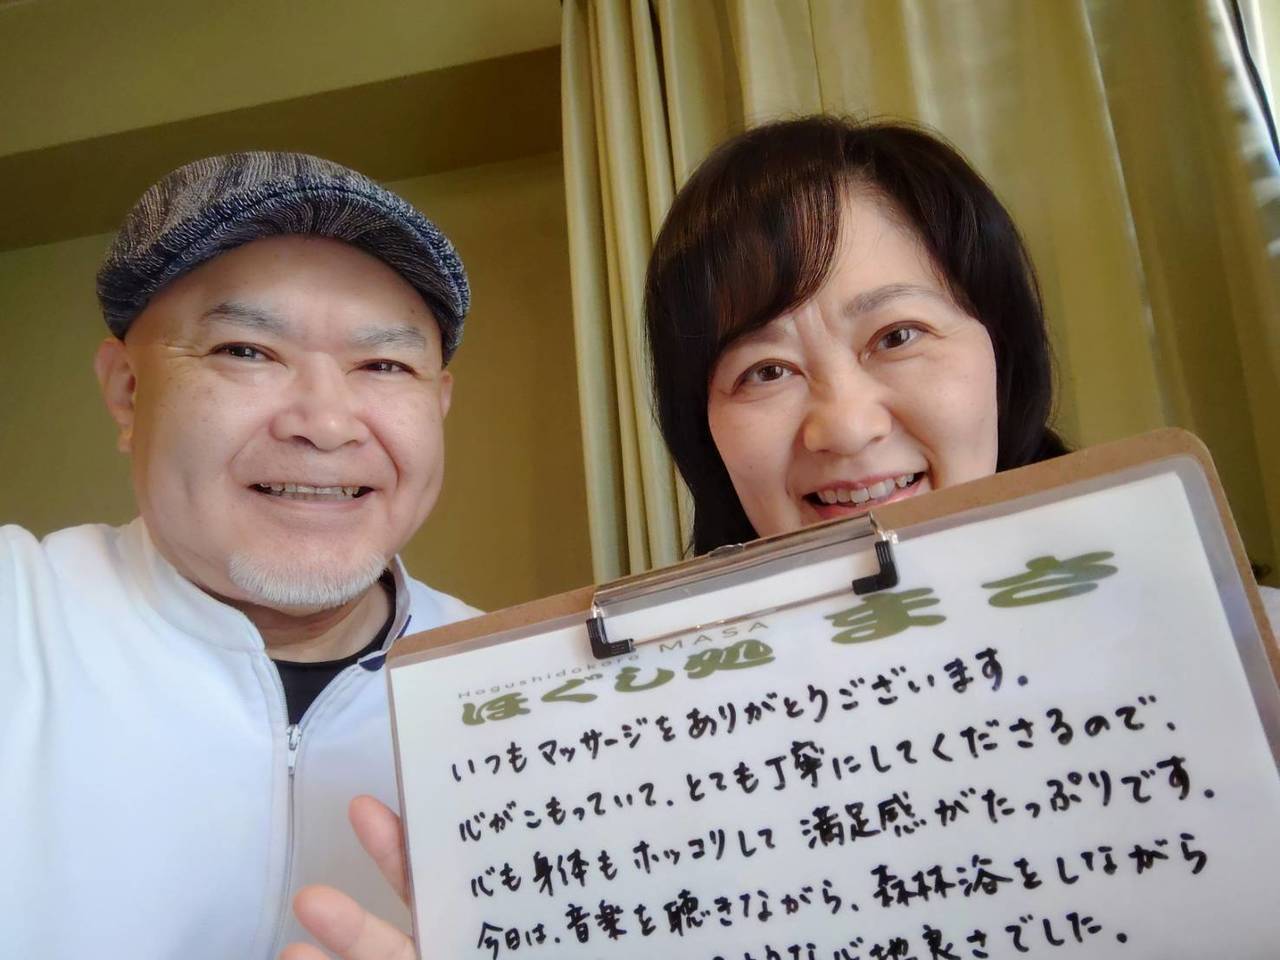 Hogushidokoro MASA
ほぐし処 まさ
いつもマッサージをありがとうございます。
心がこもっていて、とても丁寧にしてくださるので、
心も身体もホッコリして満足感がたっぷりです。
今日は、音楽を聴きながら、森林浴をしながら
ような心地良さでした。